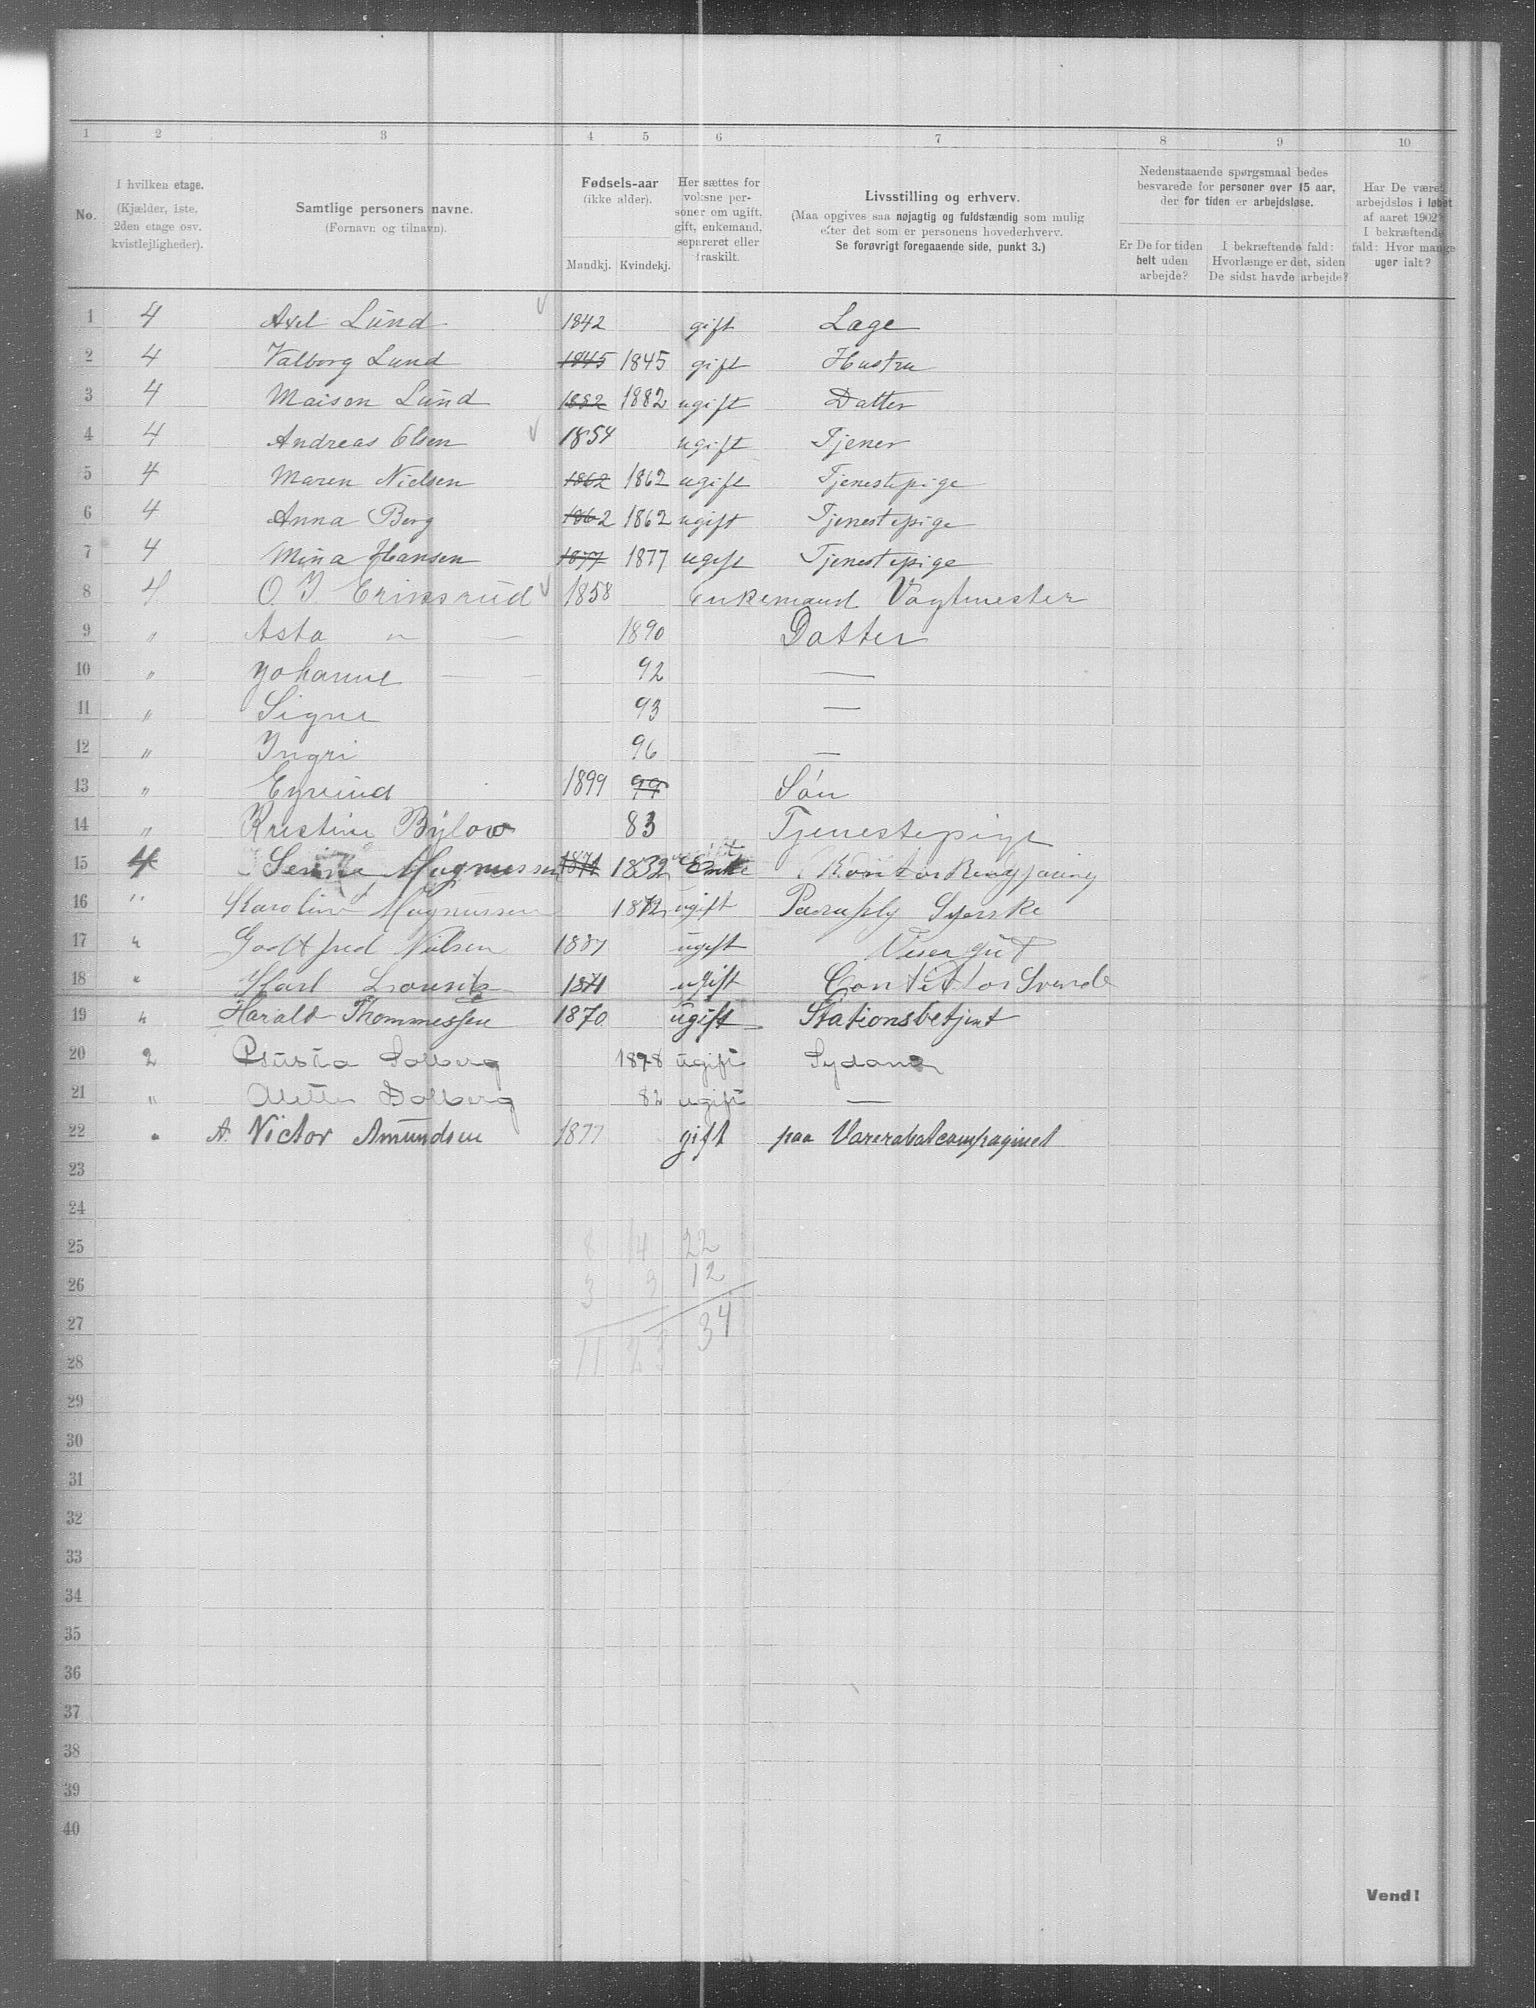 1 2 3 4 5 6 7 8 9 10
No.
I hvilken etage.
(Kjælder, 1ste,
2den etage osv.
kvistlejligheder).
Samtlige personers navne.
(Fornavn og tilnavn).
Fødsels-aar
(ikke alder).
Mandkj. Kvindekj.
Her sættes for
voksne per-
soner om ugift,
gift, enkemand,
separeret eller
fraskilt.
Livsstilling og erhverv.
(Maa opgives saa nøjagtig og fuldstændig som mulig
efter det som er personens hovederhverv.
Se forøvrigt foregaaende side, punkt 3.)
Nedenstaaende spørgsmaal bedes
besvarede for personer over 15 aar,
der for tiden er arbejdsløse.
Er De for tiden
helt uden
arbejde?
I bekræftende fald:
Hvorlænge er det, siden
De sidst havde arbejde?
Har De været
arbejdsløs i løbet
af aaret 1902?
I bekræftende
fald: Hvor mange
uger ialt?
1 4 Axel Lund 1842 gift Læge
2 4 Valborg Lund 1845 1845 gift Hustru
3 4 Maison Lund 1882 1882 ugift Datter
4 4 Andreas Olsen 1854 ugift Tjener
5 4 Maren Nielsen 1862 1862 ugift Tjenestepige
6 4 Anna Berg 1862 1862 ugift Tjenestepige
7 4 Mina Hansen 1877 1877 ugift Tjenestepige
8 4 O. J. Eriksrud 1858 Enkemand Vagtmester
9 " Asta " — 1890 Datter
10 " Johanne — — 92 —
11 " Signe 93 —
12 " Ingri 96 —
13 " Eyvind 1899 99 Søn
14 " Kristine Bülow 83 Tjenestepige
15 4 Magnussen 1832 Enke
16 " Karoline Magnussen 1872 ugift Paraply Syerske
17 " Godtfred Nilsen 1887 ugift Visergut
18 " Karl 1871 ugift Conditor Svend
19 " Harald Thommessen 1870 ugift Stationsbetjent
20 2 Solberg 1878 ugift Sydame
21 " Solberg 82 ugift —
22 " A. Victor Amundsen 1877 gift paa Varerabatcompagniet
23
24
25 8 14 22
26 3 9 12
27 34
28 11 23
29
30
31
32
33
34
35
36
37
38
39
40
Vend!